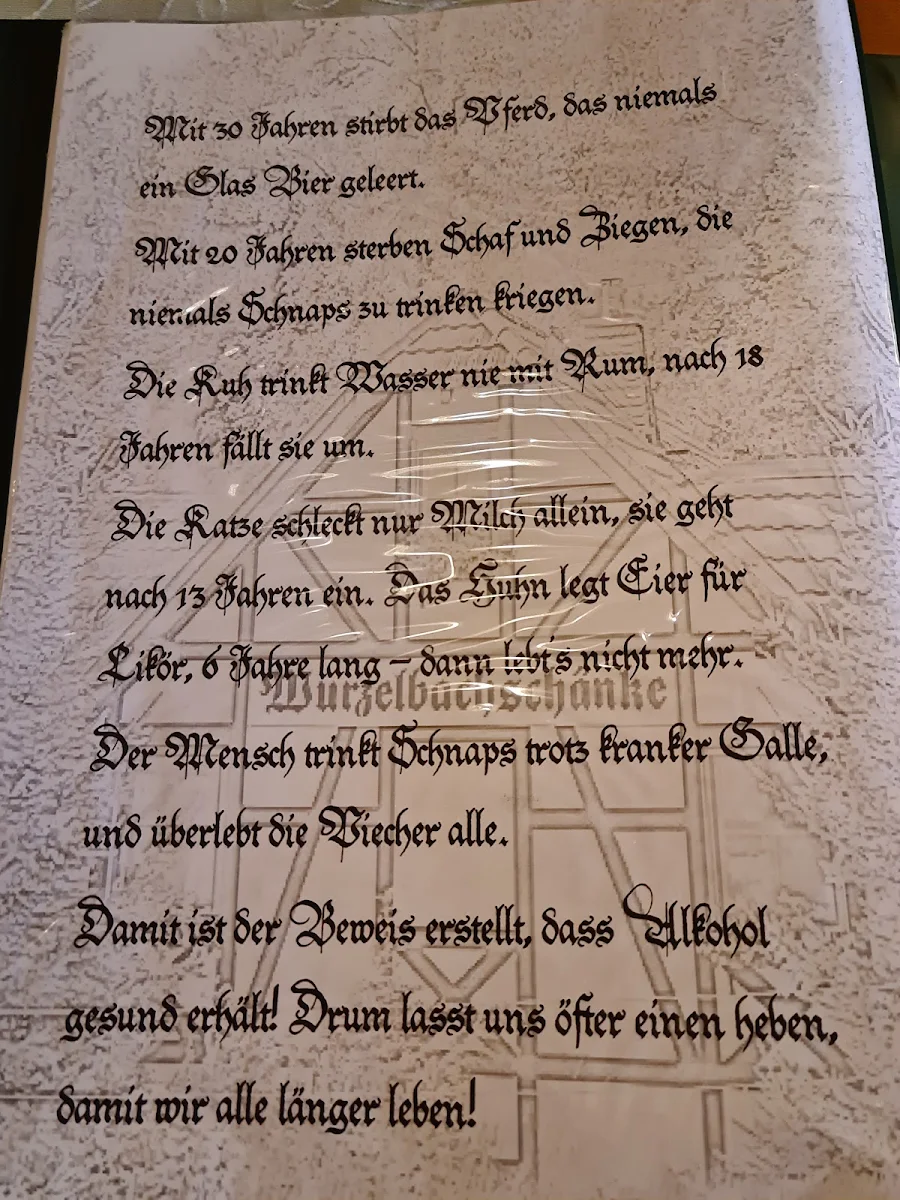 Mit 30 Jahren stirbt das Pferd, das niemals
ein Glas Bier geleert.
Mit 20 Jahren sterben Schaf und Ziegen, die
niemals Schnaps zu trinken kriegen.
Die Kuh trinkt Wasser nie mit Rum, nach 18
Jahren fällt sie um.
Die Katze schleckt nur Milch allein, sie geht
nach 13 Jahren ein. Das Huhn legt Eier für
Likör, 6 Jahre lang – dann lebt's nicht mehr.
Wurzelbachschänke
Der Mensch trinkt Schnaps trotz kranker Galle,
und überlebt die Viecher alle.
Damit ist der Beweis erstellt, dass Alkohol
gesund erhält! Drum lasst uns öfter einen heben,
damit wir alle länger leben!